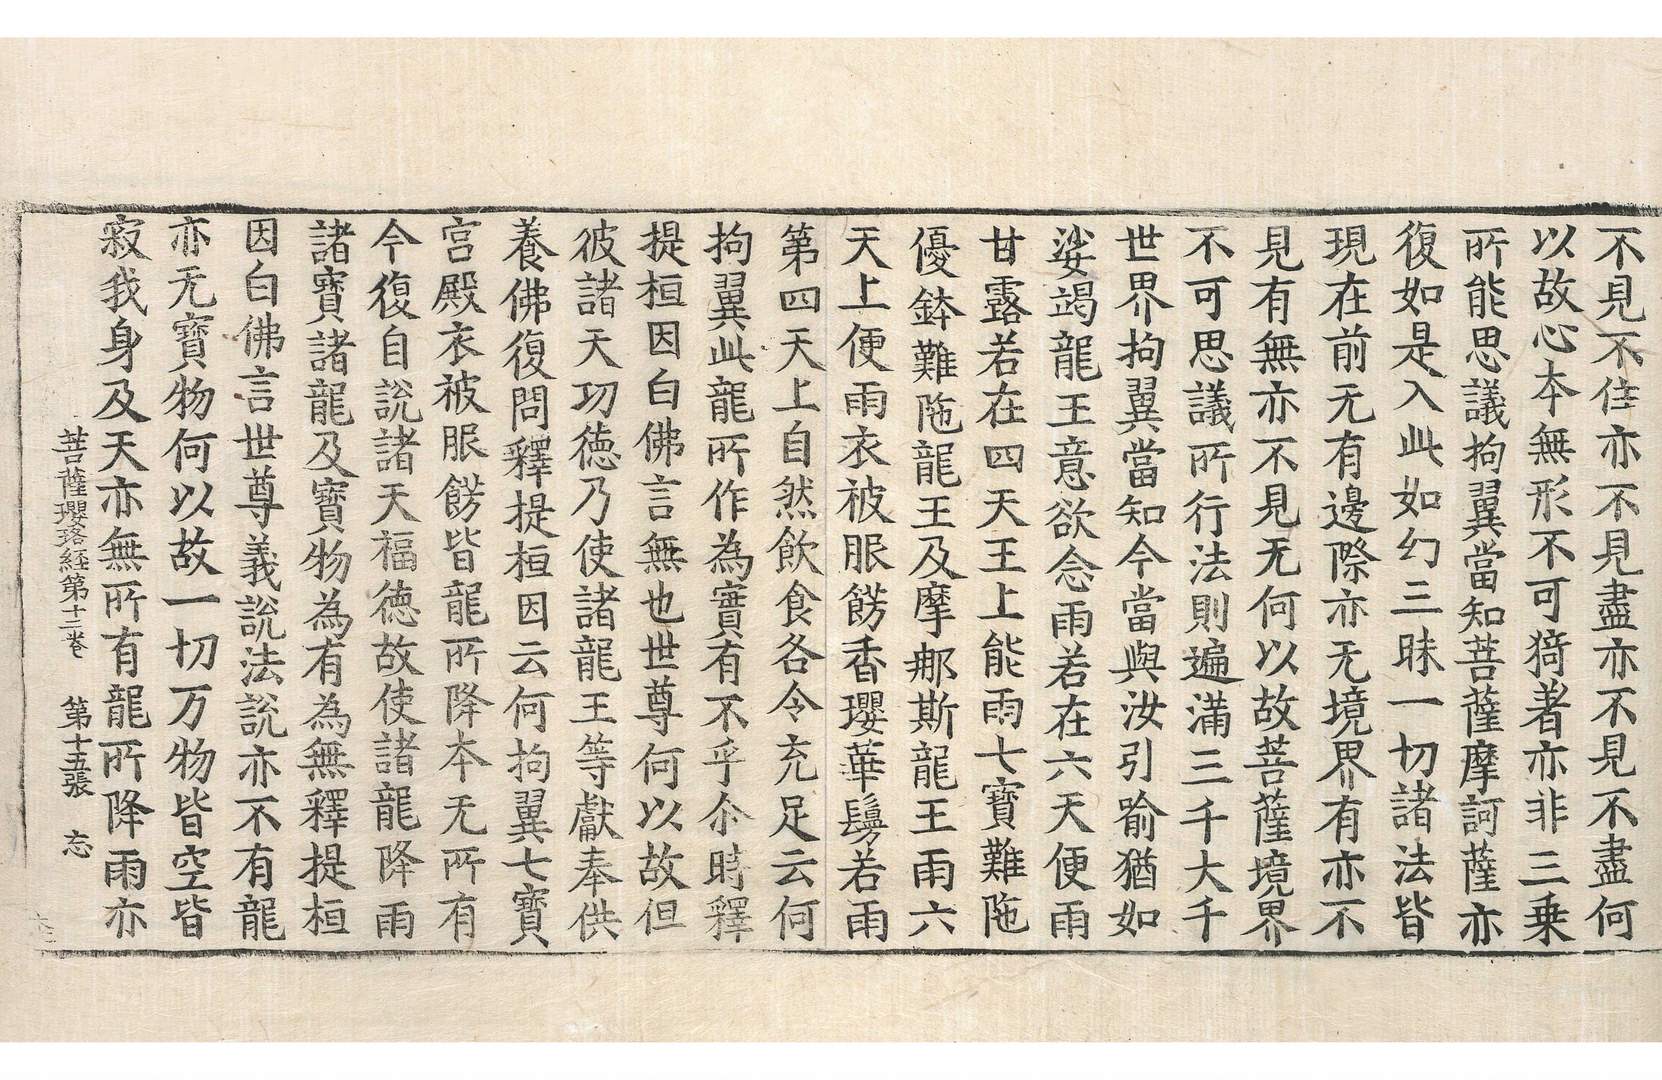 不見不住亦不見盡亦不見不盡何
以故心本無形不可猗著亦非三乗
所能思議拘翼當知菩薩摩訶薩亦
復如是入此如幻三昧一切諸法皆
現在前无有邊際亦无境界有亦不
見有無亦不見无何以故菩薩境界
不可思議所行法則遍滿三千大千
世界拘翼當知今當與汝引喻猶如
娑竭龍王意欲念雨若在六天便雨
甘露若在四天王上能雨七寶難陁
優鉢難陁龍王及摩那斯龍王雨六
天上便雨衣被服餝香瓔華鬘若雨
第四天上自然飲食各令充足云何
拘翼此龍所作為實有不乎尒時釋
提桓因白佛言無也世尊何以故但
彼諸天功德乃使諸龍王等獻奉供
養佛復問釋提桓因云何拘翼七寶
宮殿衣被服餝皆龍所降本无所有
今復自說諸天福德故使諸龍降雨
諸寶諸龍及寶物為有為無釋提桓
因白佛言世尊義說法說亦不有龍
亦无寶物何以故一切万物皆空皆
寂我身及天亦無所有龍所降雨亦
菩薩瓔珞経第十二卷 第十五張 忘